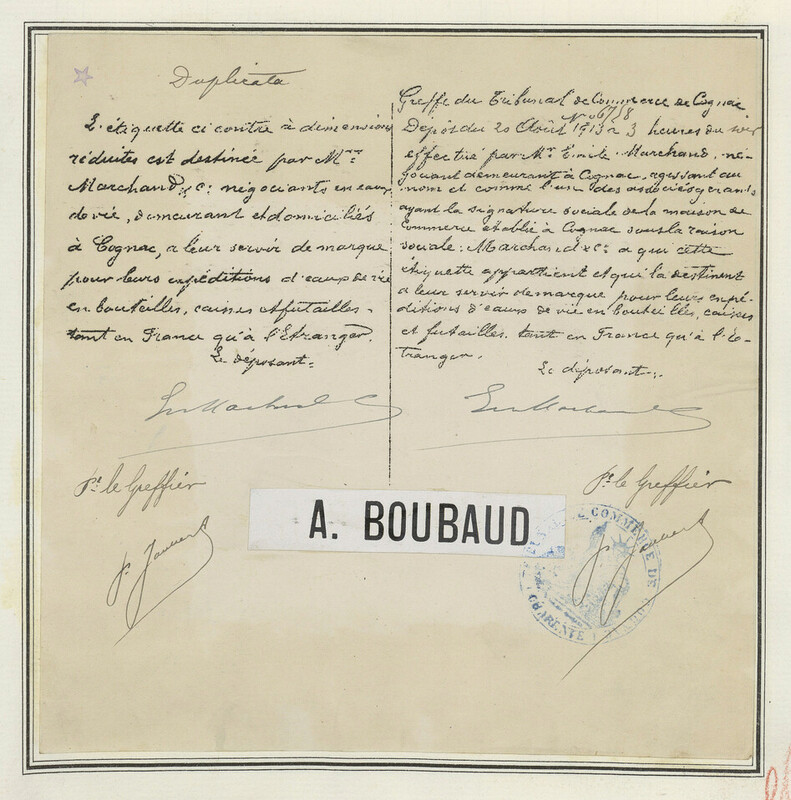 Duplicata
L'étiquette ci contre à dimensions
réduites est destinée par Mrs
Marchand & Cie négociants en eaux
de vie, demeurant et domiciliés
à Cognac, a leur servir de marque
pour leurs expéditions d'eaux de vie
en bouteilles, caisses et futailles
tant en France qu'à l'Etranger.
Le déposant
P. le Greffier
Greffe du Tribunal de Commerce de Cognac
Dépôt du 20 Août 1913 à 3 heures du soir
effectué par Mr Emile Marchand, né-
gociant demeurant à Cognac, agissant au
nom et comme l'un des associés gérants
ayant la signature sociale de la maison de
Commerce établie à Cognac sous la raison
sociale: Marchand & Cie a qui cette
étiquette appartient et qui la destinent
a leur servir de marque pour leurs expé-
ditions d'eaux de vie en bouteilles, caisses
et futailles, tant en France qu'à l'é-
tranger.
Le déposant
P. le Greffier
A. BOUBAUD
COMMERCE DE
CHARENTE